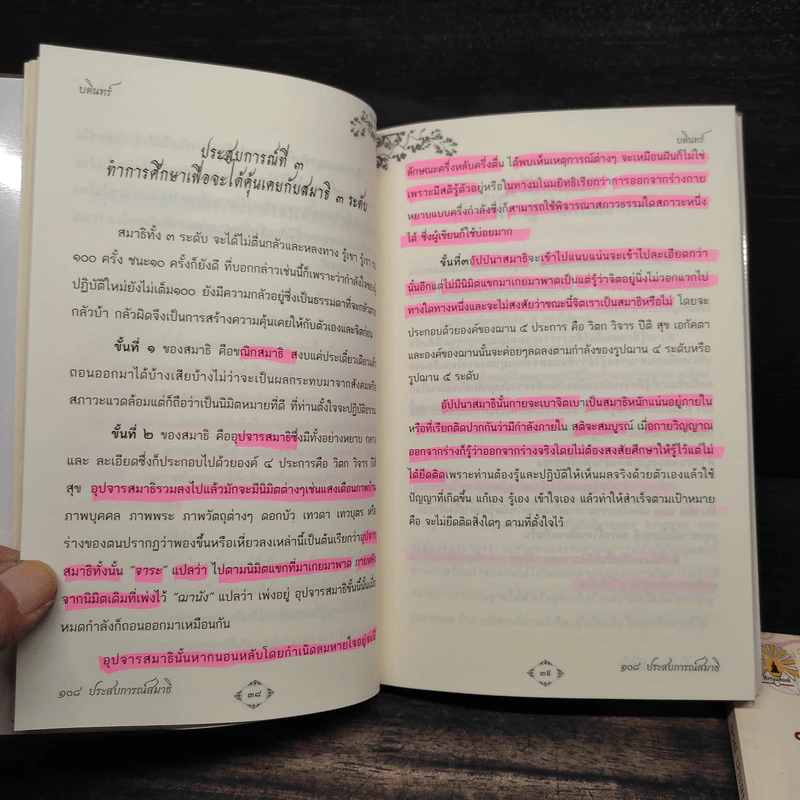 บดินทร์
ประสบการณ์ที่ ๓
ทำการศึกษาเพื่อจะได้คุ้นเคยกับสมาธิ ๓ ระดับ
สมาธิทั้ง ๓ ระดับ จะได้ไม่ตื่นกลัวและหลงทาง รู้เขา รู้เรา
๑๐๐ ครั้ง ชนะ๑๐ ครั้งก็ยังดี ที่บอกกล่าวเช่นนี้ก็เพราะว่ากำลังใจของผู้
ปฏิบัติใหม่ยังไม่เต็ม๑๐๐ ยังมีความกลัวอยู่ซึ่งเป็นธรรมดาที่จะกลัวตาย
กลัวบ้า กลัวผิดจึงเป็นการสร้างความคุ้นเคยให้กับตัวเองและจิตก่อน
ขั้นที่ ๑ ของสมาธิ คือขณิกสมาธิ สงบแค่ประเดี๋ยวเดียวแล้ว
ถอนออกมาได้บ้างเสียบ้างไม่ว่าจะเป็นผลกระทบมาจากสังคมหรือ
สภาวะแวดล้อมแต่ก็ถือว่าเป็นนิมิตหมายที่ดี ที่ท่านตั้งใจจะปฏิบัติธรรม
ขั้นที่ ๒ ของสมาธิ คืออุปจารสมาธิซึ่งมีทั้งอย่างหยาบ กลาง
และ ละเอียดซึ่งก็ประกอบไปด้วยองค์ ๔ ประการคือ วิตก วิจาร ปีติ
สุข อุปจารสมาธิรวมลงไปแล้วมักจะมีนิมิตต่างๆเช่นแสงเดือนภาพบ้าน
ภาพบุคคล ภาพพระ ภาพวัตถุต่างๆ ดอกบัว เทวดา เทวบุตร หรือ
ร่างของตนปรากฏว่าพองขึ้นหรือเหี่ยวลงเหล่านี้เป็นต้นเรียกว่าอุปจาร
สมาธิทั้งนั้น "จาระ" แปลว่า ไปตามนิมิตแขกที่มาเกยมาพาด ภายหลัง
จากนิมิตเดิมที่เพ่งไว้ "ฌานัง" แปลว่า เพ่งอยู่ อุปจารสมาธิขั้นนี้นั้นเมื่อ
หมดกำลังก็ถอนออกมาเหมือนกัน
อุปจารสมาธินั้นหากนอนหลับโดยกำเนิดลมหายใจอยู่จะมี
๑๐๘ ประสบการณ์สมาธิ
๓๘
บดินทร์
ลักษณะครึ่งหลับครึ่งตื่น ได้พบเห็นเหตุการณ์ต่างๆ จะเหมือนฝันก็ไม่ใช่
เพราะมีสติรู้ตัวอยู่หรือในทางมโนมยิทธิเรียกว่าการออกจากร่างกาย
หยาบแบบครึ่งกำลังซึ่งก็สามารถใช้พิจารณาสภาวธรรมใดสภาวะหนึ่ง
ได้ ซึ่งผู้เขียนก็ใช้บ่อยมาก
ขั้นที่๓อัปปนาสมาธิจะเข้าไปแนบแน่นจะเข้าไปละเอียดกว่า
นั้นอีกแต่ไม่มีนิมิตแขกมาเกยมาพาดเป็นแต่รู้ว่าจิตอยู่นิ่งไม่วอกแวกไป
ทางใดทางหนึ่งและจะไม่สงสัยว่าขณะนี้จิตเราเป็นสมาธิหรือไม่ โดยจะ
ประกอบด้วยองค์ของฌาน ๕ ประการ คือ วิตก วิจาร ปีติ สุข เอกัคตา
และองค์ของฌานนั้นจะค่อยๆลดลงตามกำลังของรูปฌาน ๔ ระดับหรือ
รูปฌาน ๕ ระดับ
อัปปนาสมาธินั้นกายจะเบาจิตเบาเป็นสมาธิหนักแน่นอยู่ภายใน
หรือที่เรียกติดปากกันว่ามีกำลังภายใน สติจะสมบูรณ์ เมื่อกายวิญญาณ
ออกจากร่างก็รู้ว่าออกจากร่างจริงโดยไม่ต้องสงสัยศึกษาให้รู้ไว้แต่ไม่
ได้ยึดติดเพราะท่านต้องรู้และปฏิบัติให้เห็นผลจริงด้วยตัวเองแล้วใช้
ปัญญาที่เกิดขึ้น แก้เอง รู้เอง เข้าใจเอง แล้วทำให้สำเร็จตามเป้าหมาย
คือ จะไม่ยึดติดสิ่งใดๆ ตามที่ตั้งใจไว้
๓๙
๑๐๘ ประสบการณ์สมาธิ